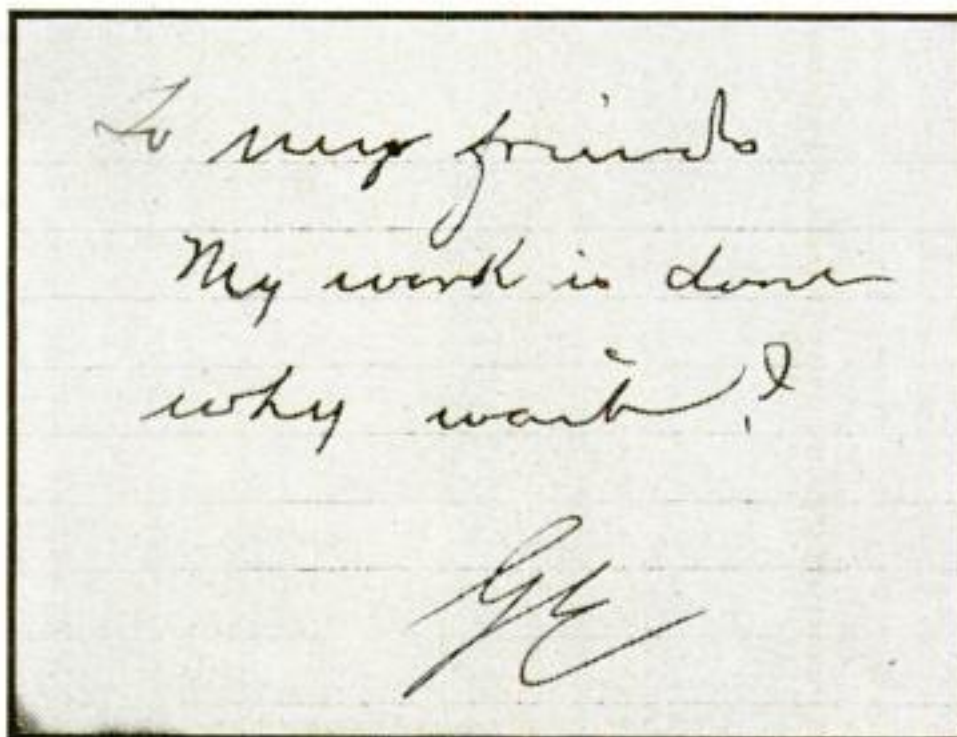 To my friends
My work is done
why wait?
GE